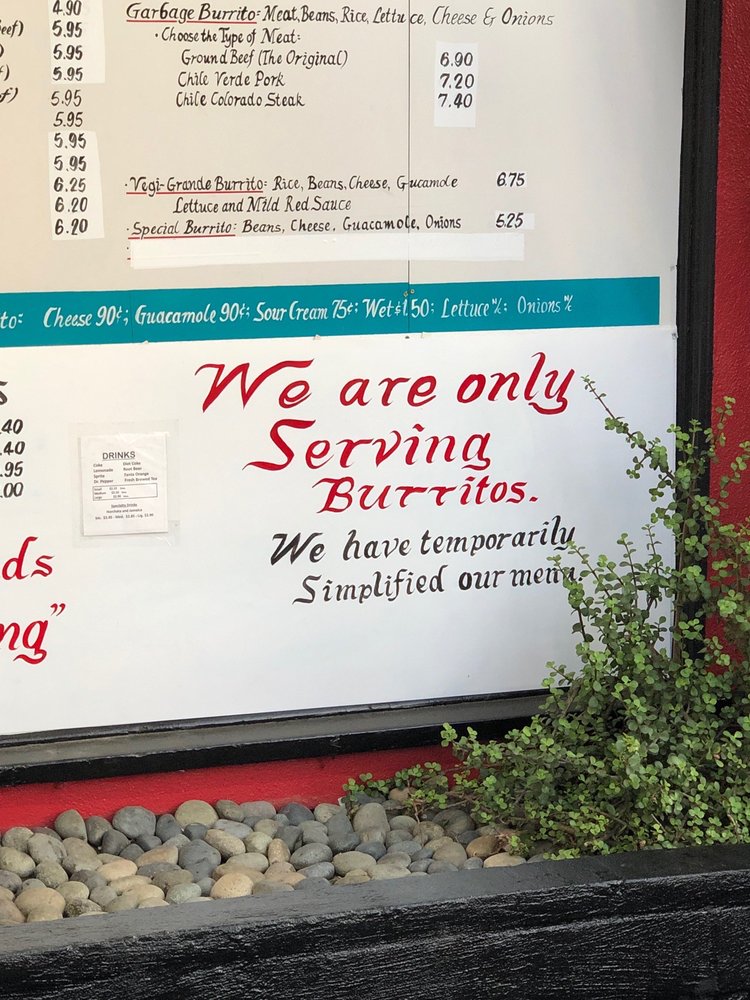 Garbage Burrito: Meat, Beans, Rice, Lettuce, Cheese & Onions
· Choose the Type of Meat:
Ground Beef (The Original) 6.90
Chile Verde Pork 7.20
Chile Colorado Steak 7.40
4.90
5.95
5.95
5.95
5.95
5.95
5.95
5.95
6.25
6.20
6.20
· Vegi-Grande Burrito: Rice, Beans, Cheese, Gucamole 6.75
Lettuce and Mild Red Sauce
· Special Burrito: Beans, Cheese, Guacamole, Onions 5.25
to: Cheese 90¢; Guacamole 90¢; Sour Cream 75¢; Wet $1.50; Lettuce N/C; Onions N/C
s
.40
.40
.95
.00
DRINKS
Coke Diet Coke
Lemonade Root Beer
Sprite Fanta Orange
Dr. Pepper Fresh Brewed Tea
Small
Medium
Large
Specialty Drinks
Horchata and Jamaica
We are only
Serving
Burritos.
We have temporarily
Simplified our menu.
ds
ng"